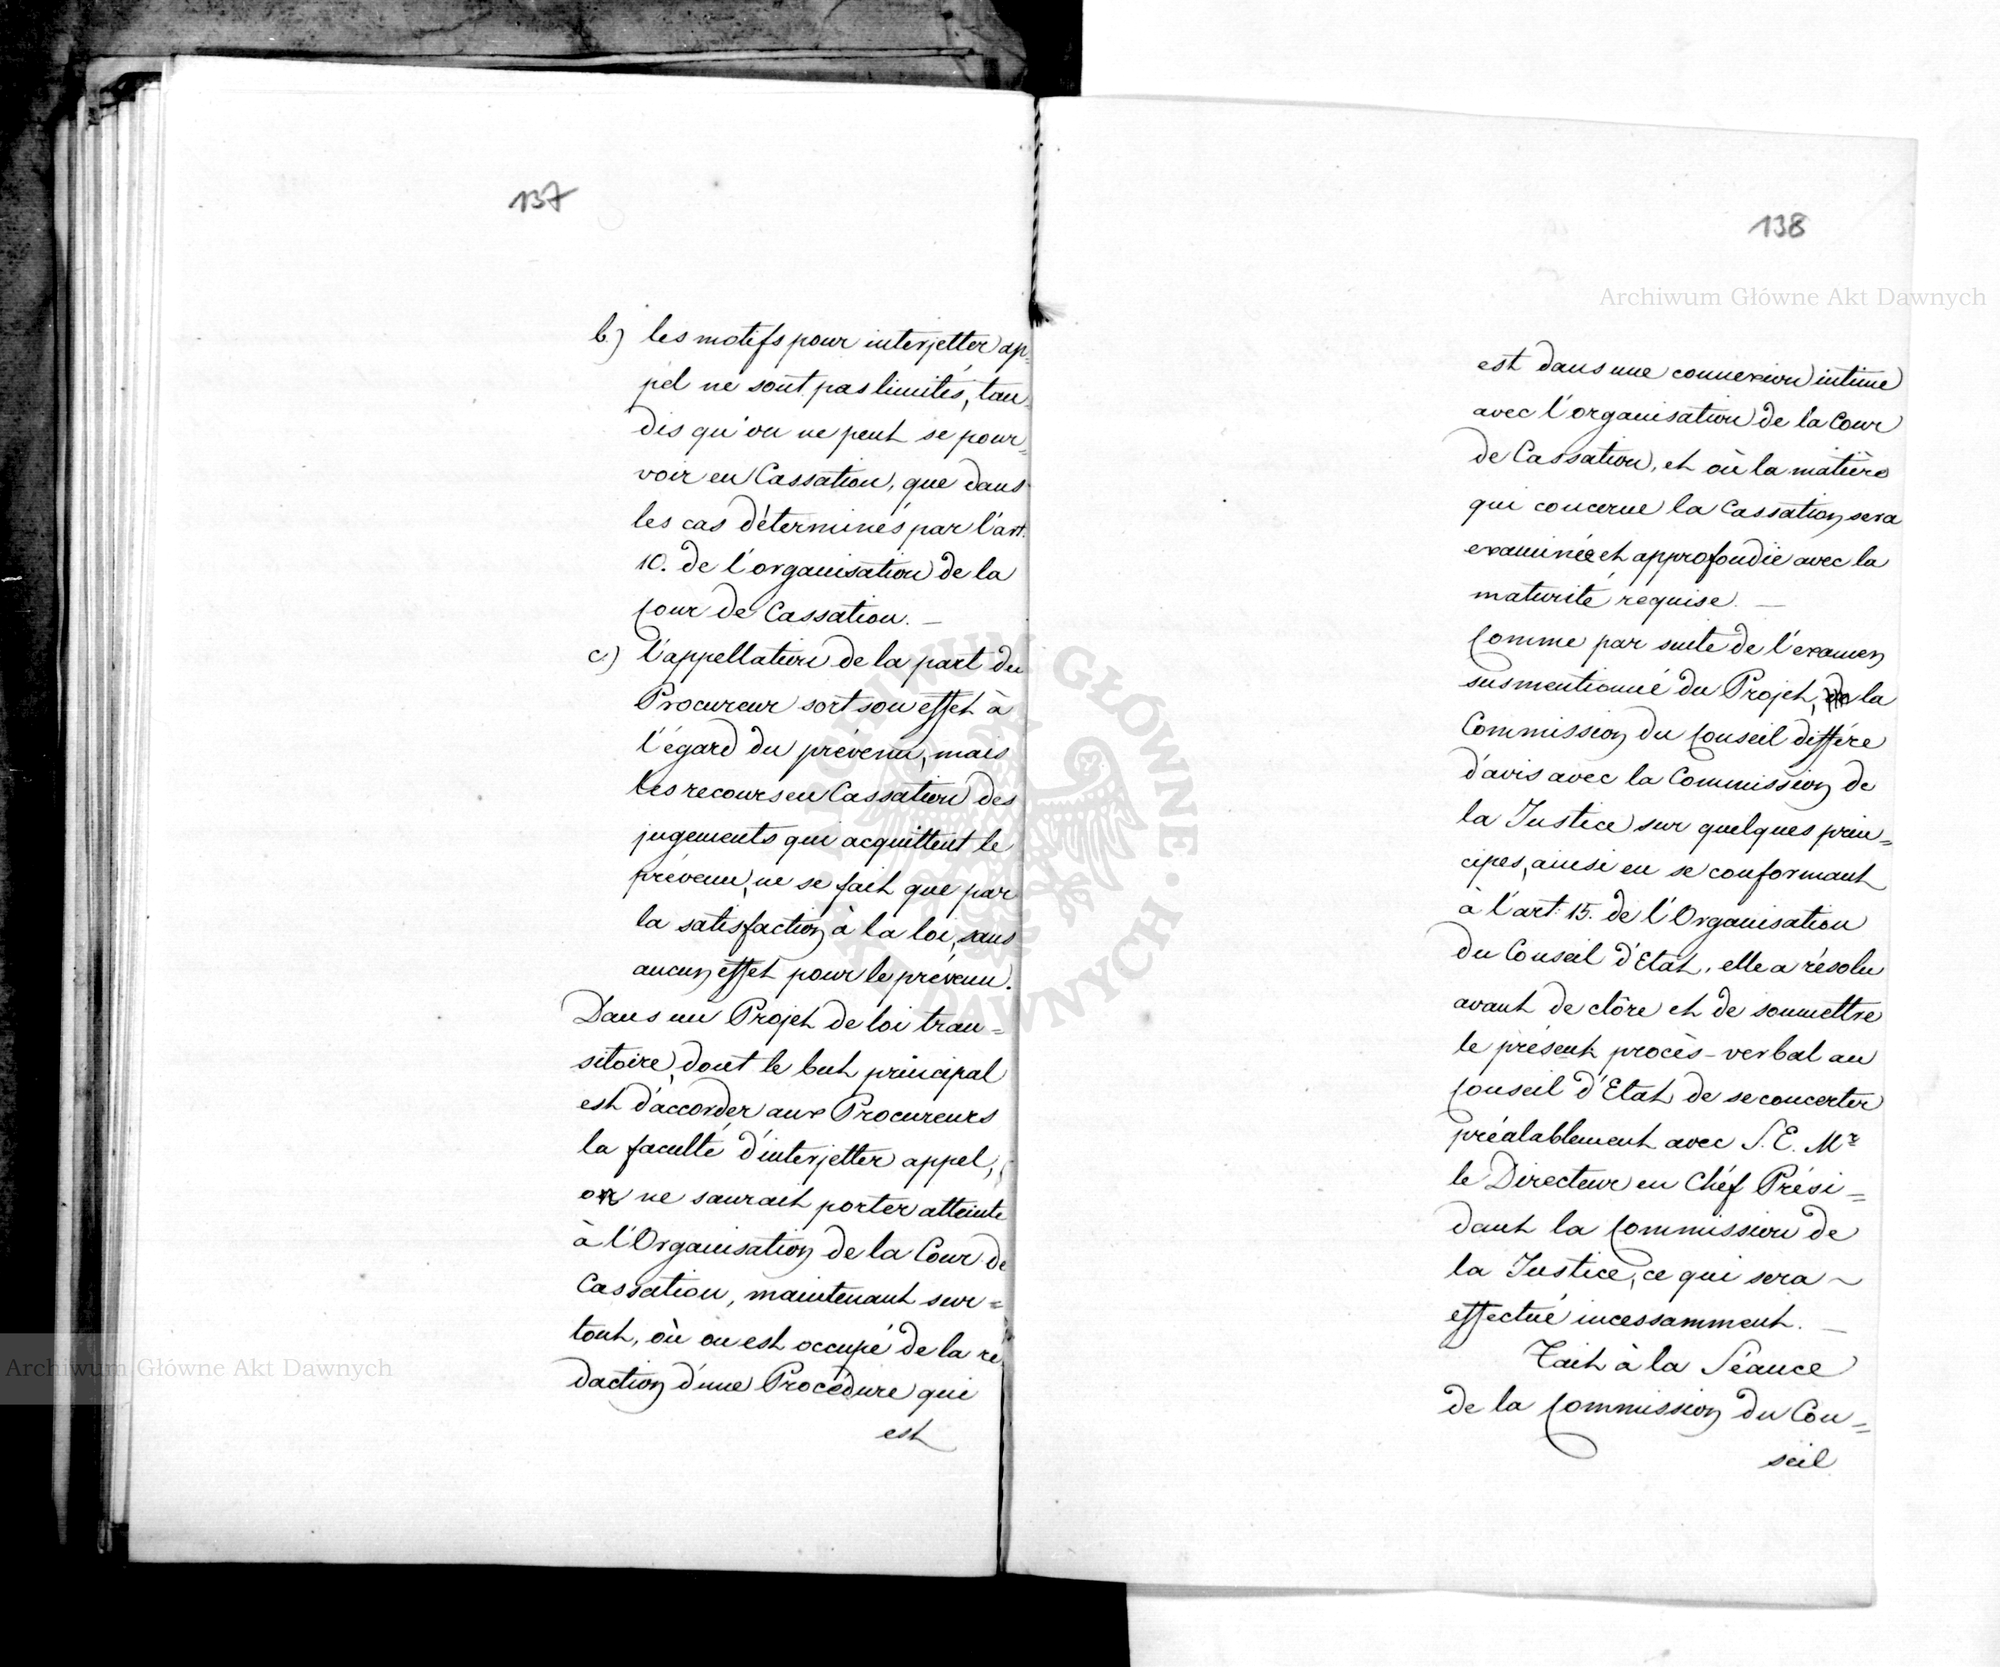 137
b.) les motifs pour interjetter ap=
pel ne sont pas limités, tan=
dis qu'on ne peut se pour=
voir en Cassation, que dans
les cas déterminés par l'art.
10. de l'organisation de la
Cour de Cassation. —
c.) l'appellation de la part du
Procureur sort son effet à
l'égard du prévenu, mais
les recours en Cassation des
jugements qui acquittent le
prévenu, ne se fait que par
la satisfaction à la loi, sans
aucun effet pour le prévenu.
Dans un Projet de loi tran=
sitoire, dont le but principal
est d'accorder aux Procureurs
la faculté d'interjetter appel,
on ne saurait porter atteinte
à l'Organisation de la Cour de
Cassation, maintenant sur=
tout, où on est occupé de la ré
daction d'une Procédure qui
est
138
est dans une connexion intime
avec l'organisation de la Cour
de Cassation, et où la matière
qui concerne la Cassation sera
examinée et approfondie avec la
maturité requise. —
Comme par suite de l'examen
susmentionné du Projet, la
Commission du Conseil différe
d'avis avec la Commission de
la Justice sur quelques prin=
cipes, ainsi en se conformant
à l'art: 15. de l'Organisation
du Conseil d'Etat, elle a résolu
avant de clôre et de soumettre
le présent procès-verbal au
Conseil d'Etat de se concerter
préalablement avec S. E. Mr
le Directeur en Chéf Prési=
dant la Commission de
la Justice, ce qui sera ~
effectué incessamment. —
Fait à la Séance
de la Commission du Con=
seil
Archiwum Główne Akt Dawnych
Archiwum Główne Akt Dawnych
ARCHIWUM GŁÓWNE AKT DAWNYCH